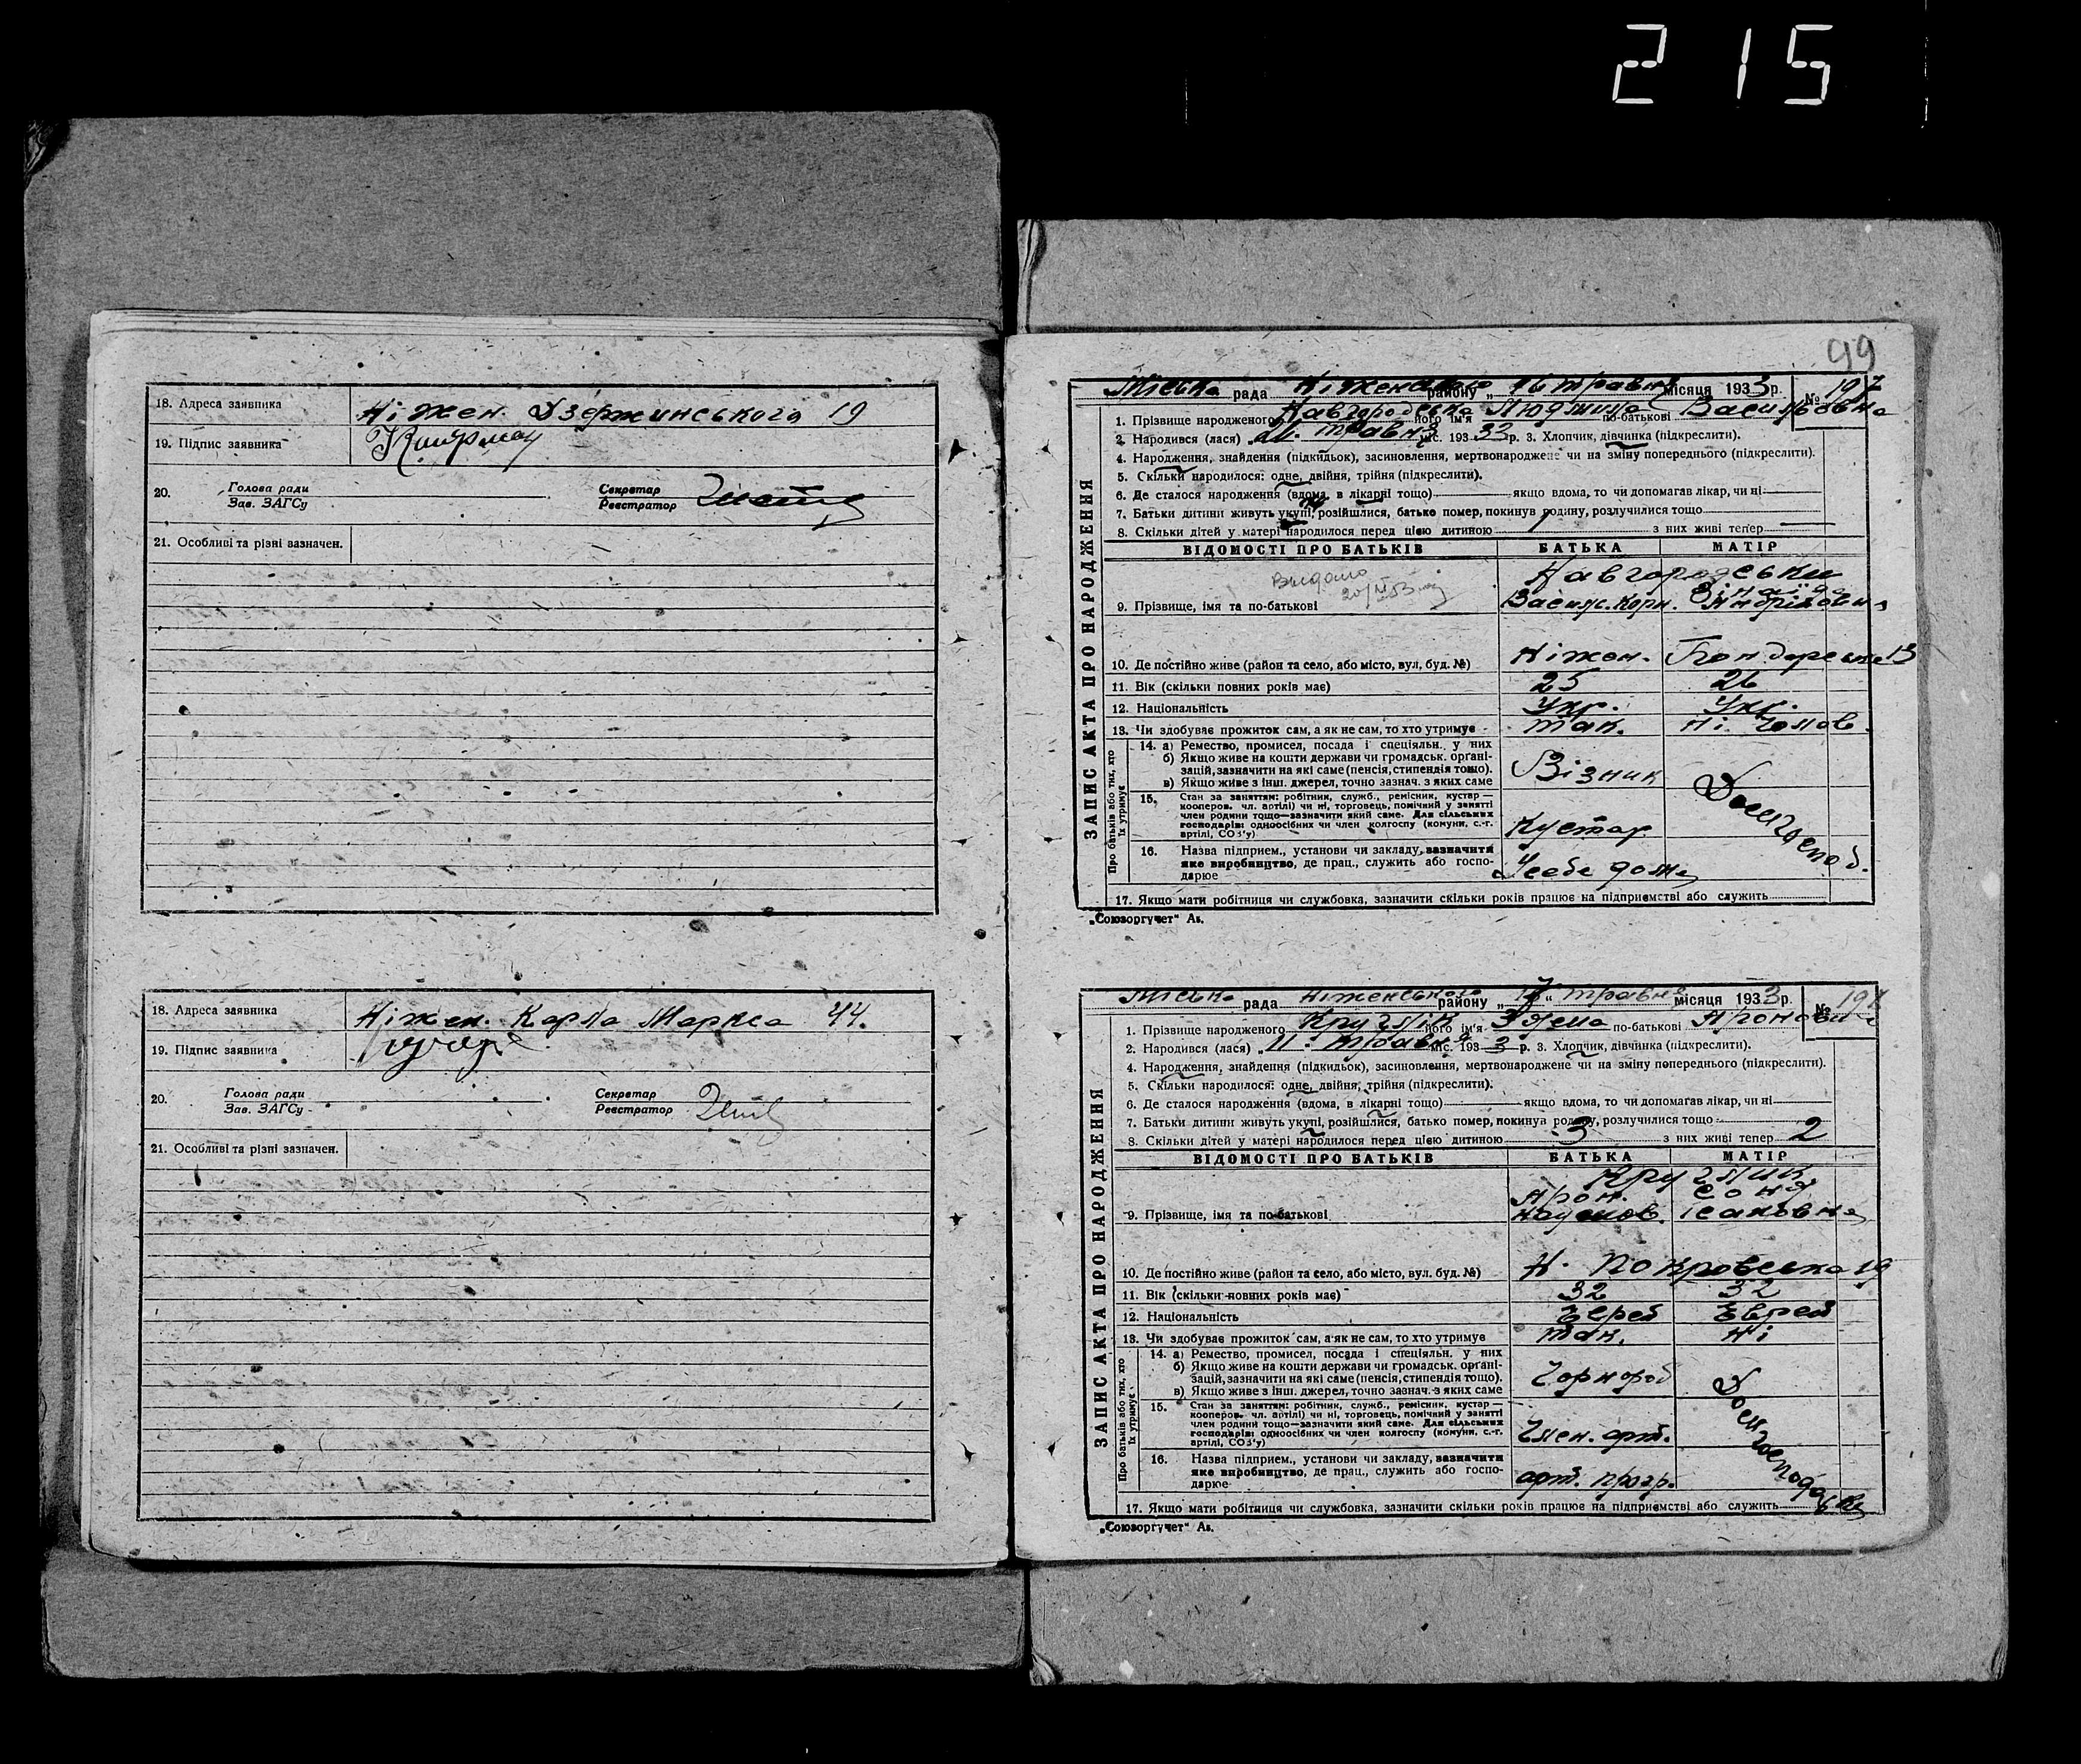 215
18. Адреса заявника Ніжен. Дзержинського 19
19. Підпис заявника
20. Голова ради Секретар
Зав. ЗАГСу Реєстратор
21. Особливі та різні зазначен.
18. Адреса заявника Ніжен. Карла Маркса 44.
19. Підпис заявника
20. Голова ради Секретар
Зав. ЗАГСу Реєстратор
21. Особливі та різні зазначен.
99
ЗАПИС АКТА ПРО НАРОДЖЕННЯ
Міська рада Ніженського району „16 травня місяця 1933 р. № 197
1. Прізвище народженого Навгородська його ім'я Людмила по-батькові Васильовна
2. Народився (лася) „ травня міс. 1933 р. 3. Хлопчик, дівчинка (підкреслити).
4. Народження, знайдення (підкидьок), засиновлення, мертвонароджене чи на зміну попереднього (підкреслити).
5. Скільки народилося: одне, двійня, трійня (підкреслити).
6. Де сталося народження (вдома, в лікарні тощо) якщо вдома, то чи допомагав лікар, чи ні
7. Батьки дитини живуть укупі, розійшлися, батько помер, покинув родину, розлучилися тощо
8. Скільки дітей у матері народилося перед цією дитиною з них живі тепер
ВІДОМОСТІ ПРО БАТЬКІВ БАТЬКА МАТІР
Видано
Навгородськи
Зінаїда
9. Прізвище, імя та по-батькові Васил. Корн. Андріховна
10. Де постійно живе (район та село, або місто, вул, буд. №) Ніжен. 13
11. Вік (скільки повних років має) 25 26
12. Національність Укр. Укр.
13. Чи здобуває прожиток сам, а як не сам, то хто утримує так. Ні. Чолов.
Про батьків або тих, хто їх утримує
14. а) Ремество, промисел, посада і спеціяльн. у них
б) Якщо живе на кошти держави чи громадськ. органі-
зацій, зазначити на які саме (пенсія, стипендія тощо). Візник
в) Якщо живе з інш. джерел, точно зазнач. з яких саме Дом. господ.
15. Стан за заняттям: робітник, служб., ремісник, кустар—
кооперов. чл. артілі) чи ні, торговець, помічний у занятті
член родини тощо—зазначити який саме. Для сільських
господарів: одноосібних чи член колгоспу (комуни, с.-г. Кустар
артілі, СОЗ'у)
16. Назва підприєм., установи чи закладу, зазначити
яке виробництво, де прац., служить або госпо- У себе дома
дарює
17. Якщо мати робітниця чи службовка, зазначити скільки років працює на підприємстві або служить
„Союзоргучет“ Ав.
ЗАПИС АКТА ПРО НАРОДЖЕННЯ
Міська рада Ніженського району „17“ травня місяця 1933 р. № 198
1. Прізвище народженого Кручлік його ім'я Зяма по-батькові Аронович
2. Народився (лася) „11. травня міс. 1933 р. 3. Хлопчик, дівчинка (підкреслити).
4. Народження, знайдення (підкидьок), засиновлення, мертвонароджене чи на зміну попереднього (підкреслити).
5. Скільки народилося: одне, двійня, трійня (підкреслити).
6. Де сталося народження (вдома, в лікарні тощо) якщо вдома, то чи допомагав лікар, чи ні
7. Батьки дитини живуть укупі, розійшлися, батько помер, покинув родину, розлучилися тощо
8. Скільки дітей у матері народилося перед цією дитиною 3 з них живі тепер 2
ВІДОМОСТІ ПРО БАТЬКІВ БАТЬКА МАТІР
Кручлик
Арон. Соня
9. Прізвище, імя та по-батькові Наумов. Ісаковна
10. Де постійно живе (район та село, або місто, вул. буд. №) Н. Покровська 19
11. Вік (скільки повних років має) 32 32
12. Національність Єврей Єврей
13. Чи здобуває прожиток сам, а як не сам, то хто утримує так. Ні
Про батьків або тих, хто їх утримує
14. а) Ремество, промисел, посада і спеціяльн. у них
б) Якщо живе на кошти держави чи громадськ. органі-
зацій, зазначити на які саме (пенсія, стипендія тощо). Чорнороб
в) Якщо живе з інш. джерел, точно зазнач. з яких саме Дом. господарка
15. Стан за заняттям: робітник, служб., ремісник, кустар—
кооперов. чл. артілі) чи ні, торговець, помічний у занятті
член родини тощо—зазначити який саме. Для сільських
господарів: одноосібних чи член колгоспу (комуни, с.-г. Член. арт.
артілі, СОЗ'у)
16. Назва підприєм., установи чи закладу, зазначити
яке виробництво, де прац., служить або госпо- арт.
дарює
17. Якщо мати робітниця чи службовка, зазначити скільки років працює на підприємстві або служить
„Союзоргучет“ Ав.